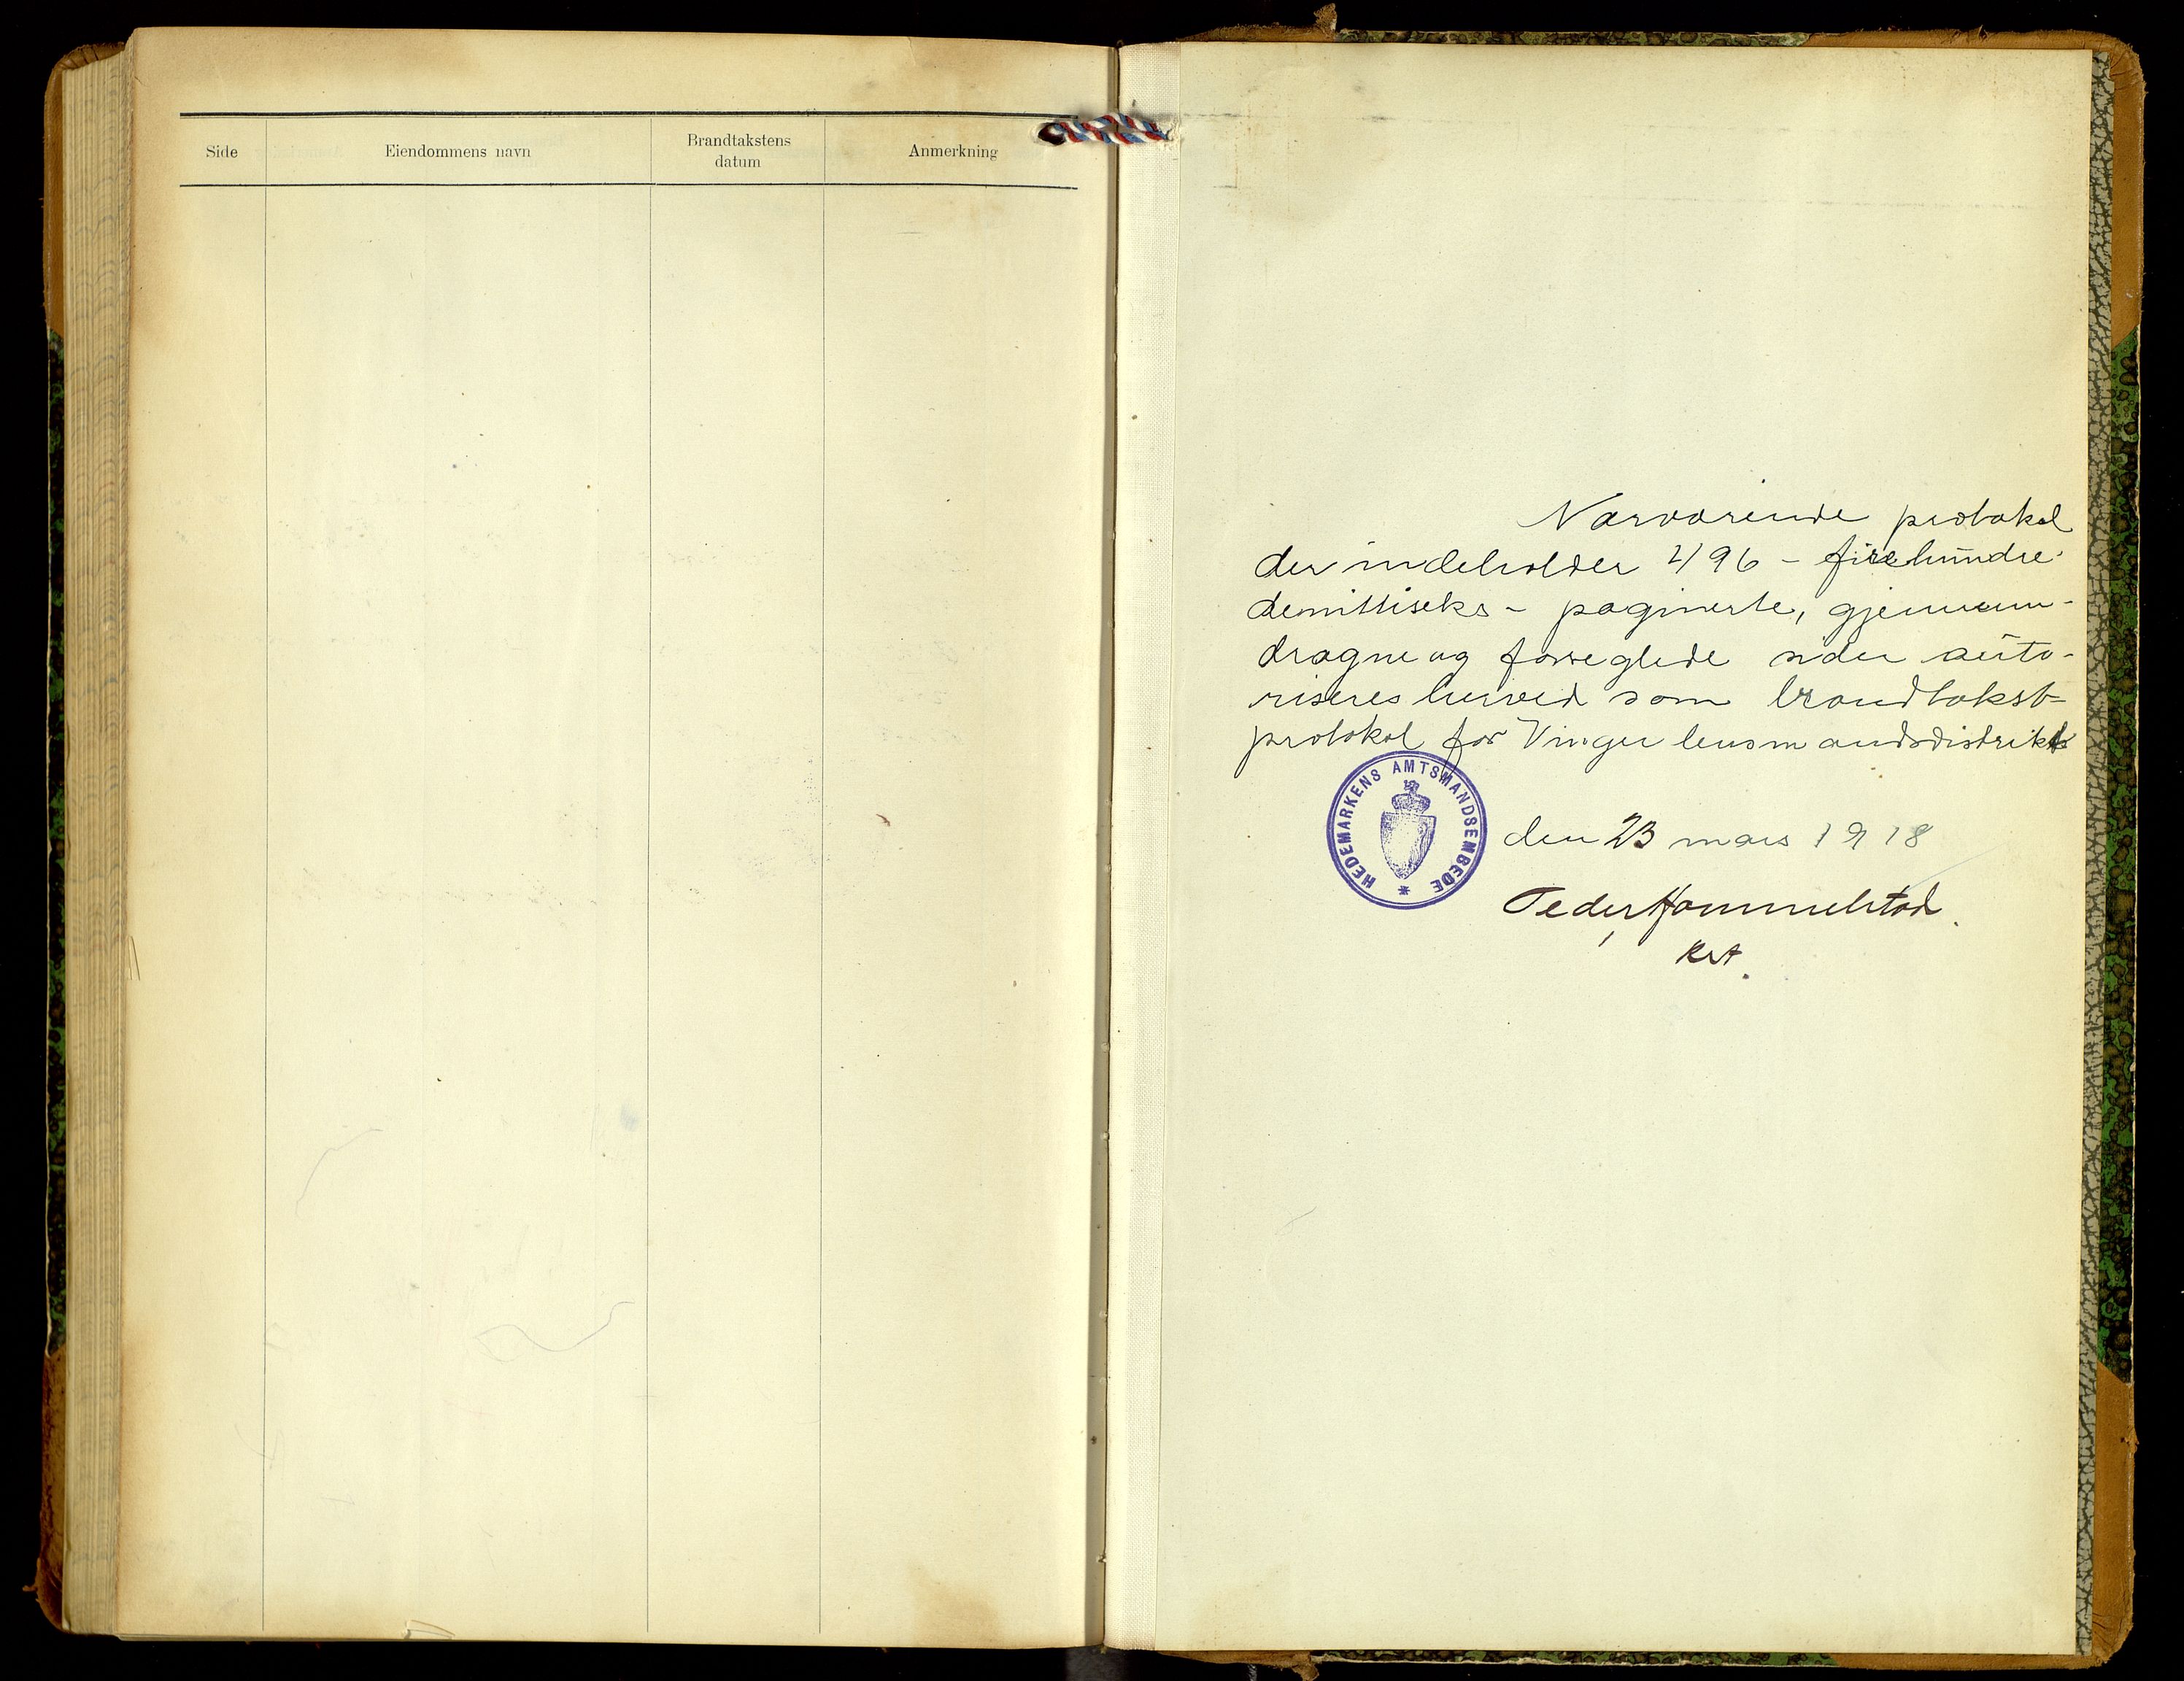 Side
Eiendommens navn
Brandtakstens
datum
Anmerkning
Nærværende protokol
der indeholder 496 - firehundre
demittiseks - paginerte, gjennem-
dragne og forseglede sider auto-
riseres herved som brandtakst-
protokol for Vinger lensmandsdistrikt
HEDEMARKENS AMTSMANDSEMBEDE
den 23 mars 1918
Peder Hommelstad.
kst.